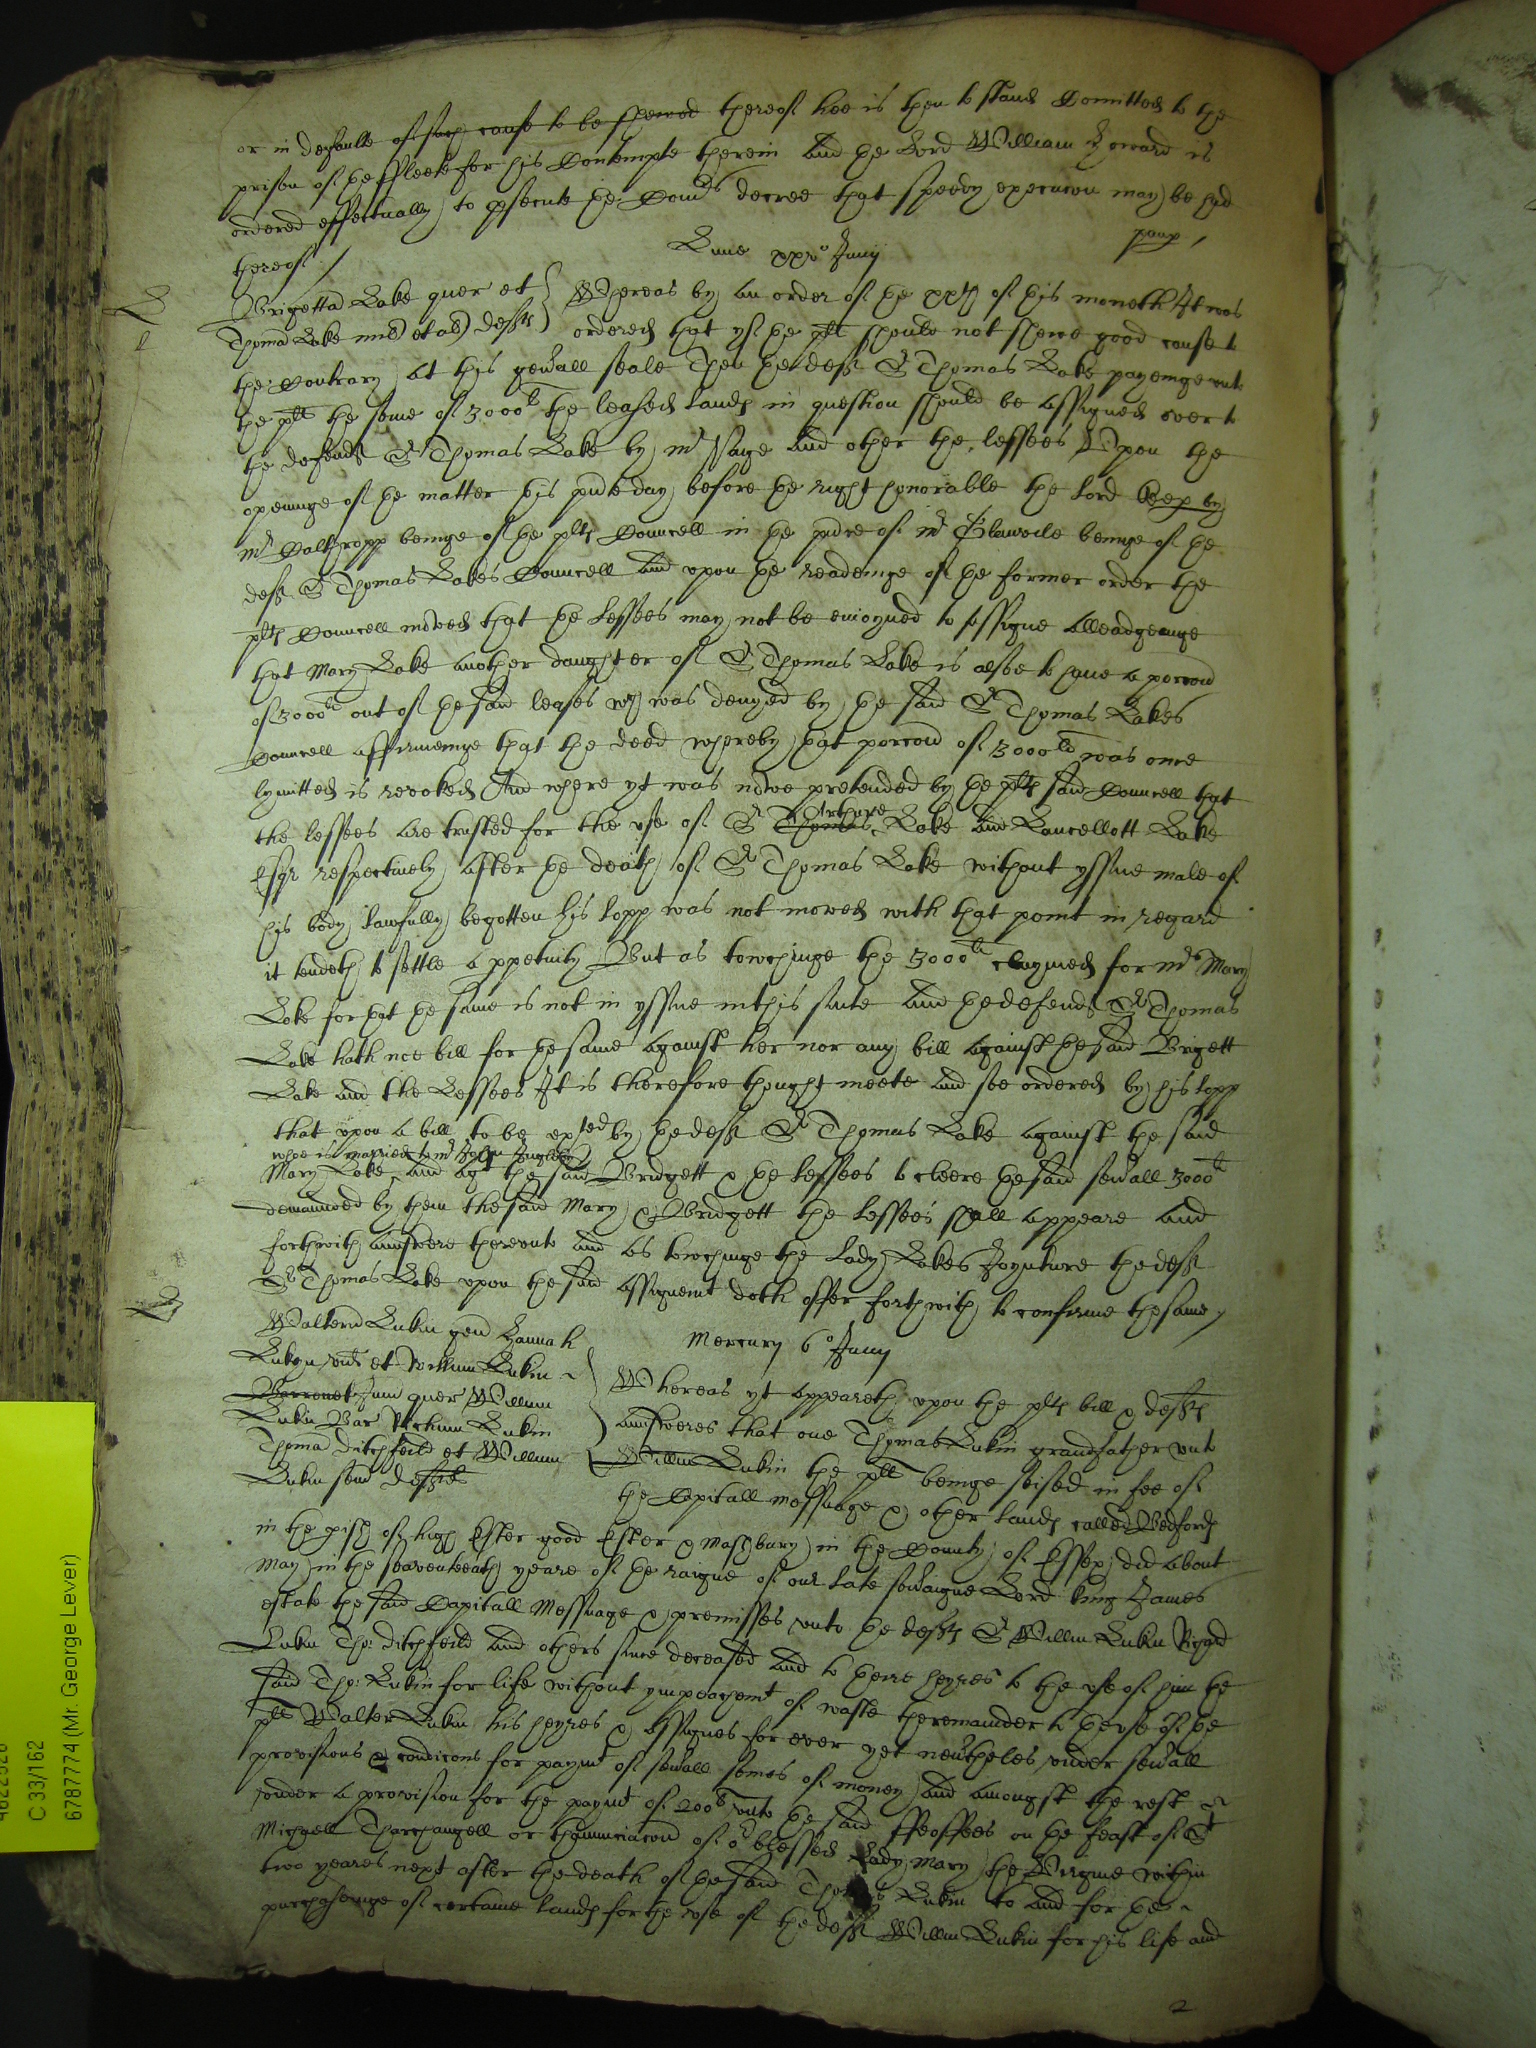 or in defaulte of such cause to be shewed thereof hee is then to stand Comitted to the
prison of ye ffleete for his Contempte therein And ye Lord William Howard is
ordered effectually to psecute ye Com̃ds decree that speedy execucon may be had
thereof /
Lune xxvo Junij
Brigetta Lake quer et
Thoma Lake mil et al defts
Whereas by an order of ye xxth of this moneth It was
ordered that yf ye plt should not shewe good cause to
the Contrary at this gen̄all seale Then ye deft Sr Thomas Lake payeinge unto
the plt the some of 3000li the leased lands in question should be assigned over to
the defendt Sr Thomas Lake by mr Sage and other the lessees Upon the
openinge of ye matter this pnte day before ye right honorable the Lord Keep by
mr Calthropp beinge of ye plts Councell in ye pnce of mr Glanvile beinge of ye
deft Sr Thomas Lakes Councell and upon ye readeinge of ye former order the
plts Councell moved that ye Lessees may not be enioyned to assigne alleadgeinge
that Mary Lake another daughter of Sr Thomas Lake is alsoe to have a porcon
of 3000li out of ye said leases wch was denyed by ye said Sr Thomas Lakes
Councell affirmeinge that the deed whereby that porcon of 3000li was once
lymitted is revoked And where yt was nowe pretended by ye plts said Councell that
the lessees are trusted for the use of Sr Thomas Arthure Lake and Lancellott Lake
Esqr respectively after ye death of Sr Thomas Lake without yssue male of
his body lawfully begotten his lopp was not moved with that point in regard
it tendeth to settle a ppetuity But as towchinge the 3000li claymed for mrs Mary
Lake for that ye same is not in yssue in this suite and ye defendt Sr Thomas
Lake hath noe bill for ye same against her nor any bill against ye said Brigett
Lake and the Lessees It is therefore thought meete and soe ordered by his lopp
that upon a bill to be exted by ye deft Sr Thomas Lake against the said
whoe is married to mr John
Mary Lake and agt the said Bridgett & ye Lessees to cleere ye said sev̄all 3000li
demaunded by them the said Mary & Bridgett the lessees shall appeare and
forthwith answere thereunto and as towchinge the Lady Lakes Joynture the deft
Sr Thomas Lake upon the said assignemt doth offer forthwith to confirme the same /
Mercury 6o Junij
Walterū Lukin gen̄ Hannah
Lukyn et Willm Lukin
Barronet Jun quer Willum
Lukin Bar Richum Lukin
Thoma Ditchfeild et Willum
Lukin sen̄ defts
Whereas yt appeareth upon the plts bill & defts
answeres that one Thomas Lukin grandfather unto
Willm Lukin the plt beinge seised in fee of
the Capitall messuage & other lands called Bedfords
in the pish of high Ester good Ester & Mashbury in the County of Essex did about
May in the seaventeenth yeare of ye raigne of our late soῡaigne Lord King James
estate the said Capitall Messuage & premisses unto ye defts Sr Willm Lukin Richard
Lukin Tho: Ditchfeild and others since deceased and to theire heyres to the use of him the
said Tho: Lukin for life without ympeachemt of waste the remainder to ye use of ye
plt Walter Lukin his heyres & assignes for ever yet nev̄theles under sev̄all
provisions & condicons for paymt of sev̄all somes of money and amongst the rest
under a provision for the paymt of 200li unto ye said ffeoffees on ye feast of St
Michaell Tharchangell or thannunciacon of or blessed Lady Mary the Virgine within
two yeares next after the death of ye said Thomas Lukin to and for the
purchaseinge of certaine lands for the use of the deft Willm Lukin for his life and
2
C 33/162
6787774 (Mr. George Lever)